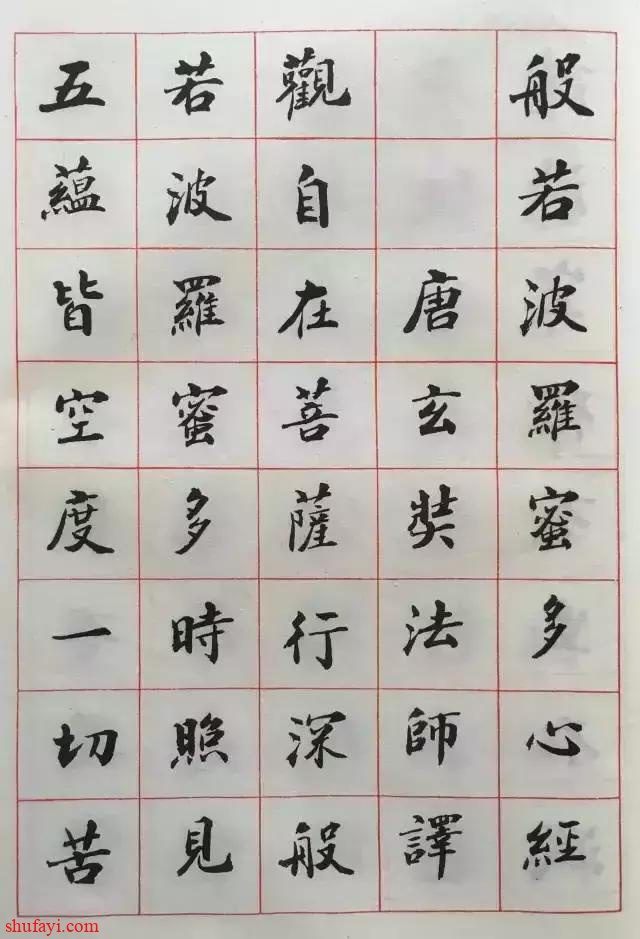 般若波羅蜜多心經
唐玄奘法師譯
觀自在菩薩行深般
若波羅蜜多時照見
五蘊皆空度一切苦
shufayi.com